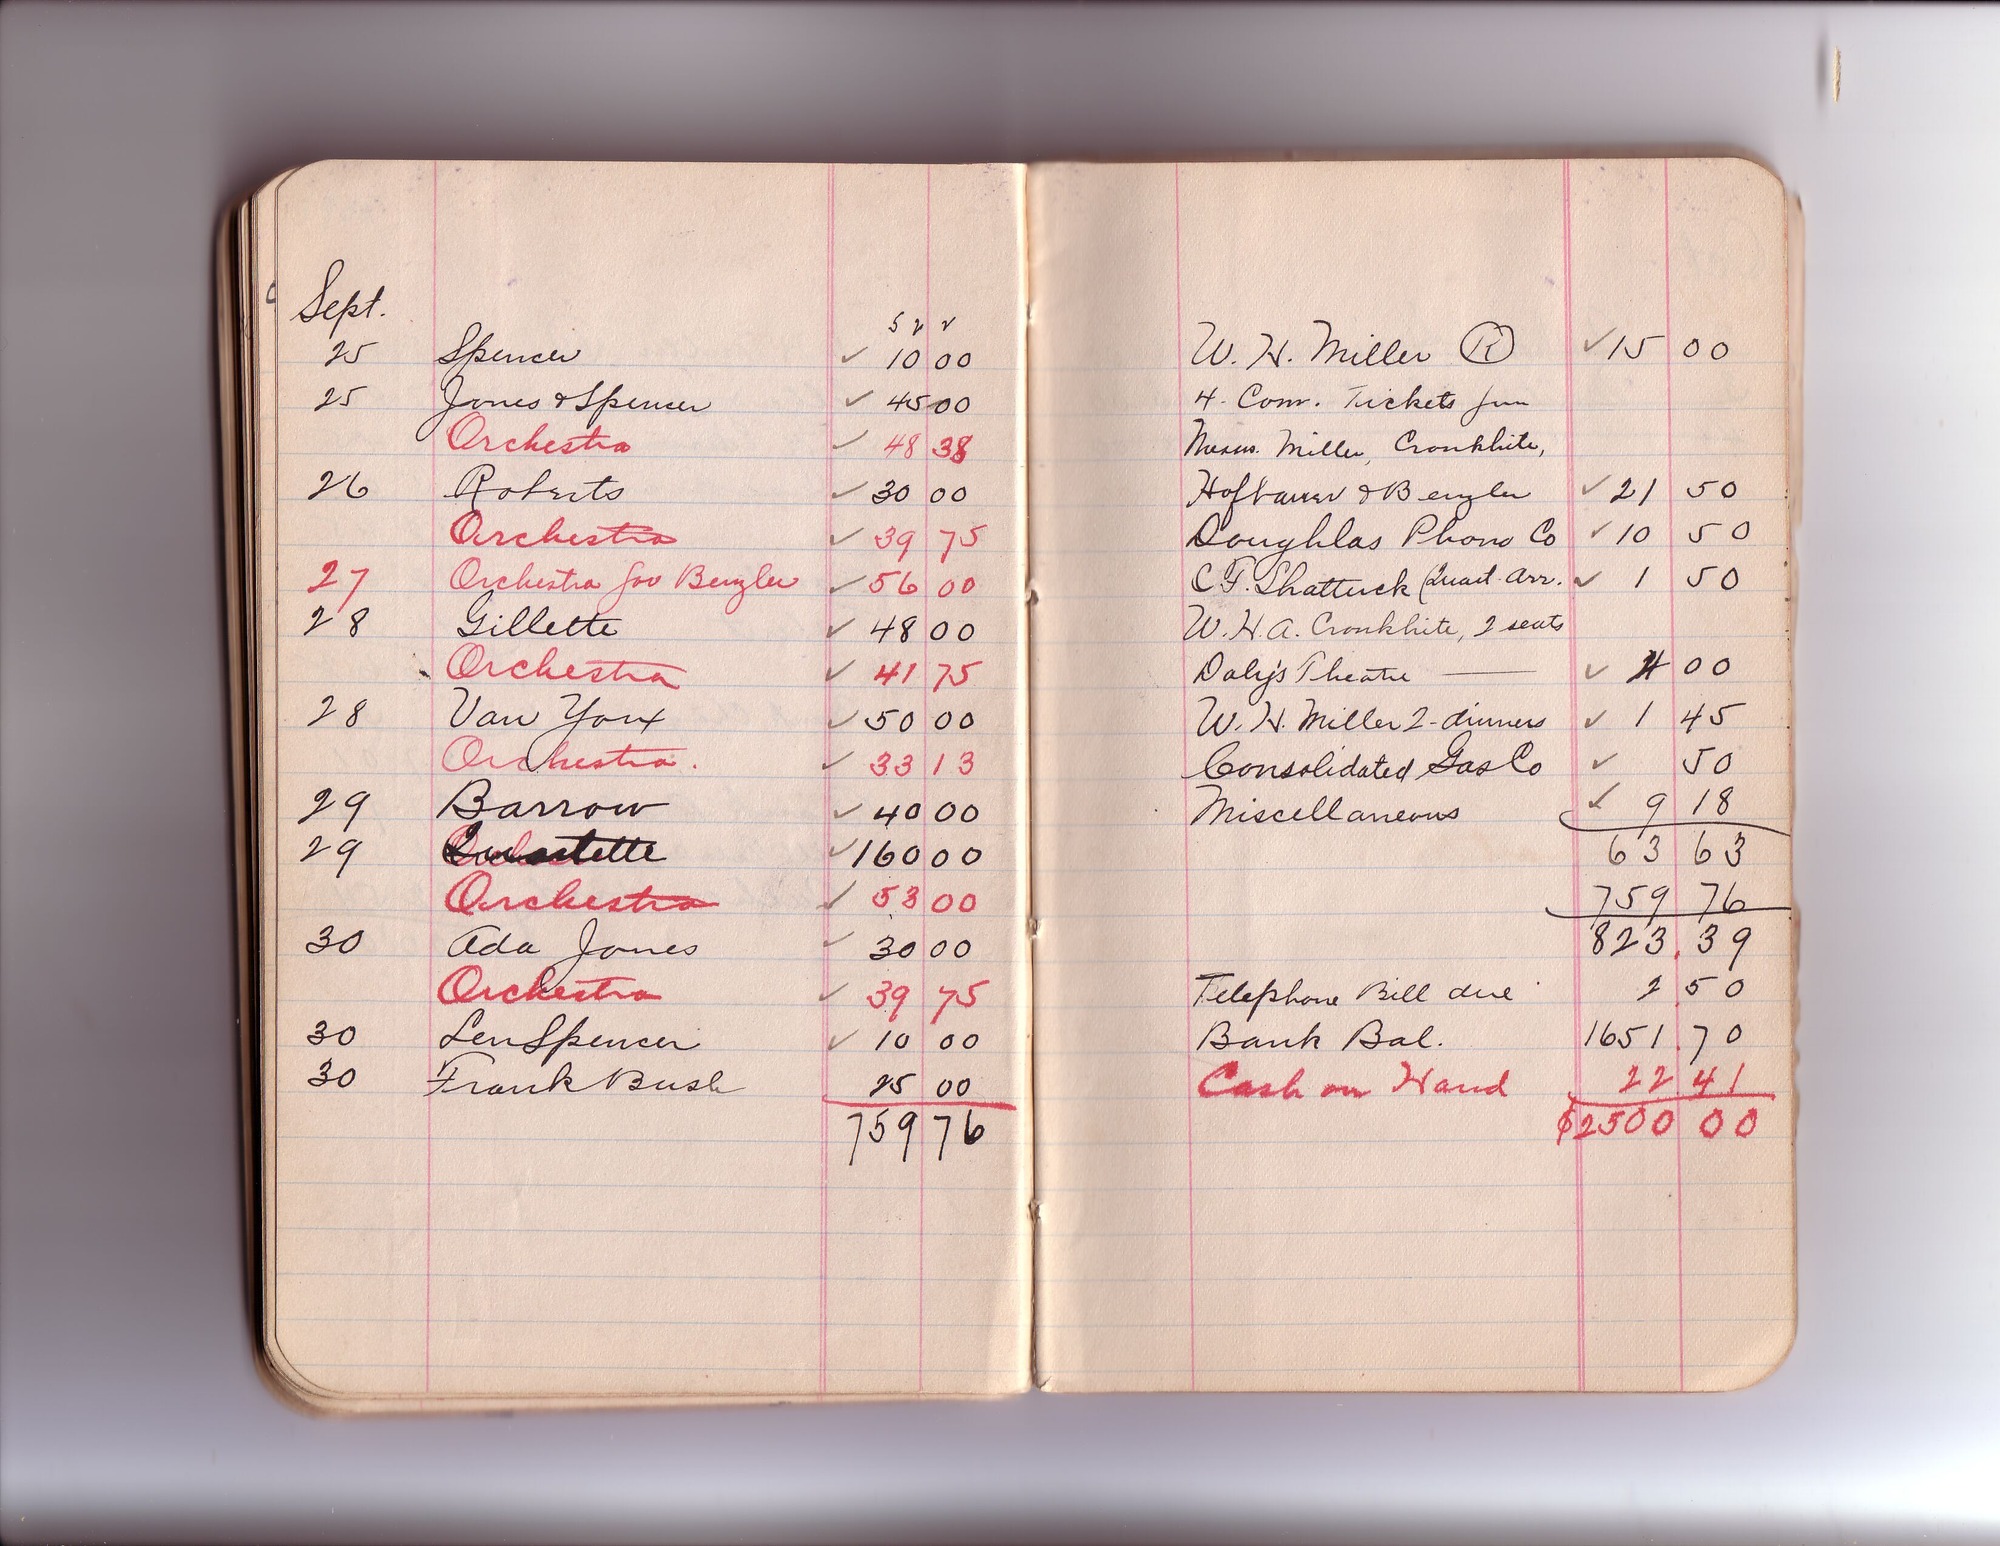 Sept.
25 Spencer ✓ 10 00
25 Jones & Spencer ✓ 45 00
Orchestra ✓ 48 38
26 Roberts ✓ 30 00
Orchestra ✓ 39 75
27 Orchestra for Benzler ✓ 56 00
28 Gillette ✓ 48 00
Orchestra ✓ 41 75
28 Van York ✓ 50 00
Orchestra. ✓ 33 13
29 Barrow ✓ 40 00
29 Quartette ✓ 160 00
Orchestra ✓ 53 00
30 Ada Jones ✓ 30 00
Orchestra ✓ 39 75
30 Len Spencer ✓ 10 00
30 Frank Bush 25 00
759 76
W. H. Miller (R) ✓ 15 00
4 Com. Tickets for
Messrs. Miller, Cronkhite,
Hofbauer & Benzler ✓ 21 50
Doughlas Phono Co ✓ 10 50
C.F. Shattuck (Quart. Arr. ✓ 1 50
W. H. A. Cronkhite, 2 seats
Daly's Theatre — ✓ 4 00
W. H. Miller 2-dinners ✓ 1 45
Consolidated Gas Co ✓ 50
Miscellaneous ✓ 9 18
63 63
759 76
823.39
Telephone Bill due 2 50
Bank Bal. 1651.70
Cash on Hand 22 41
$2500 00